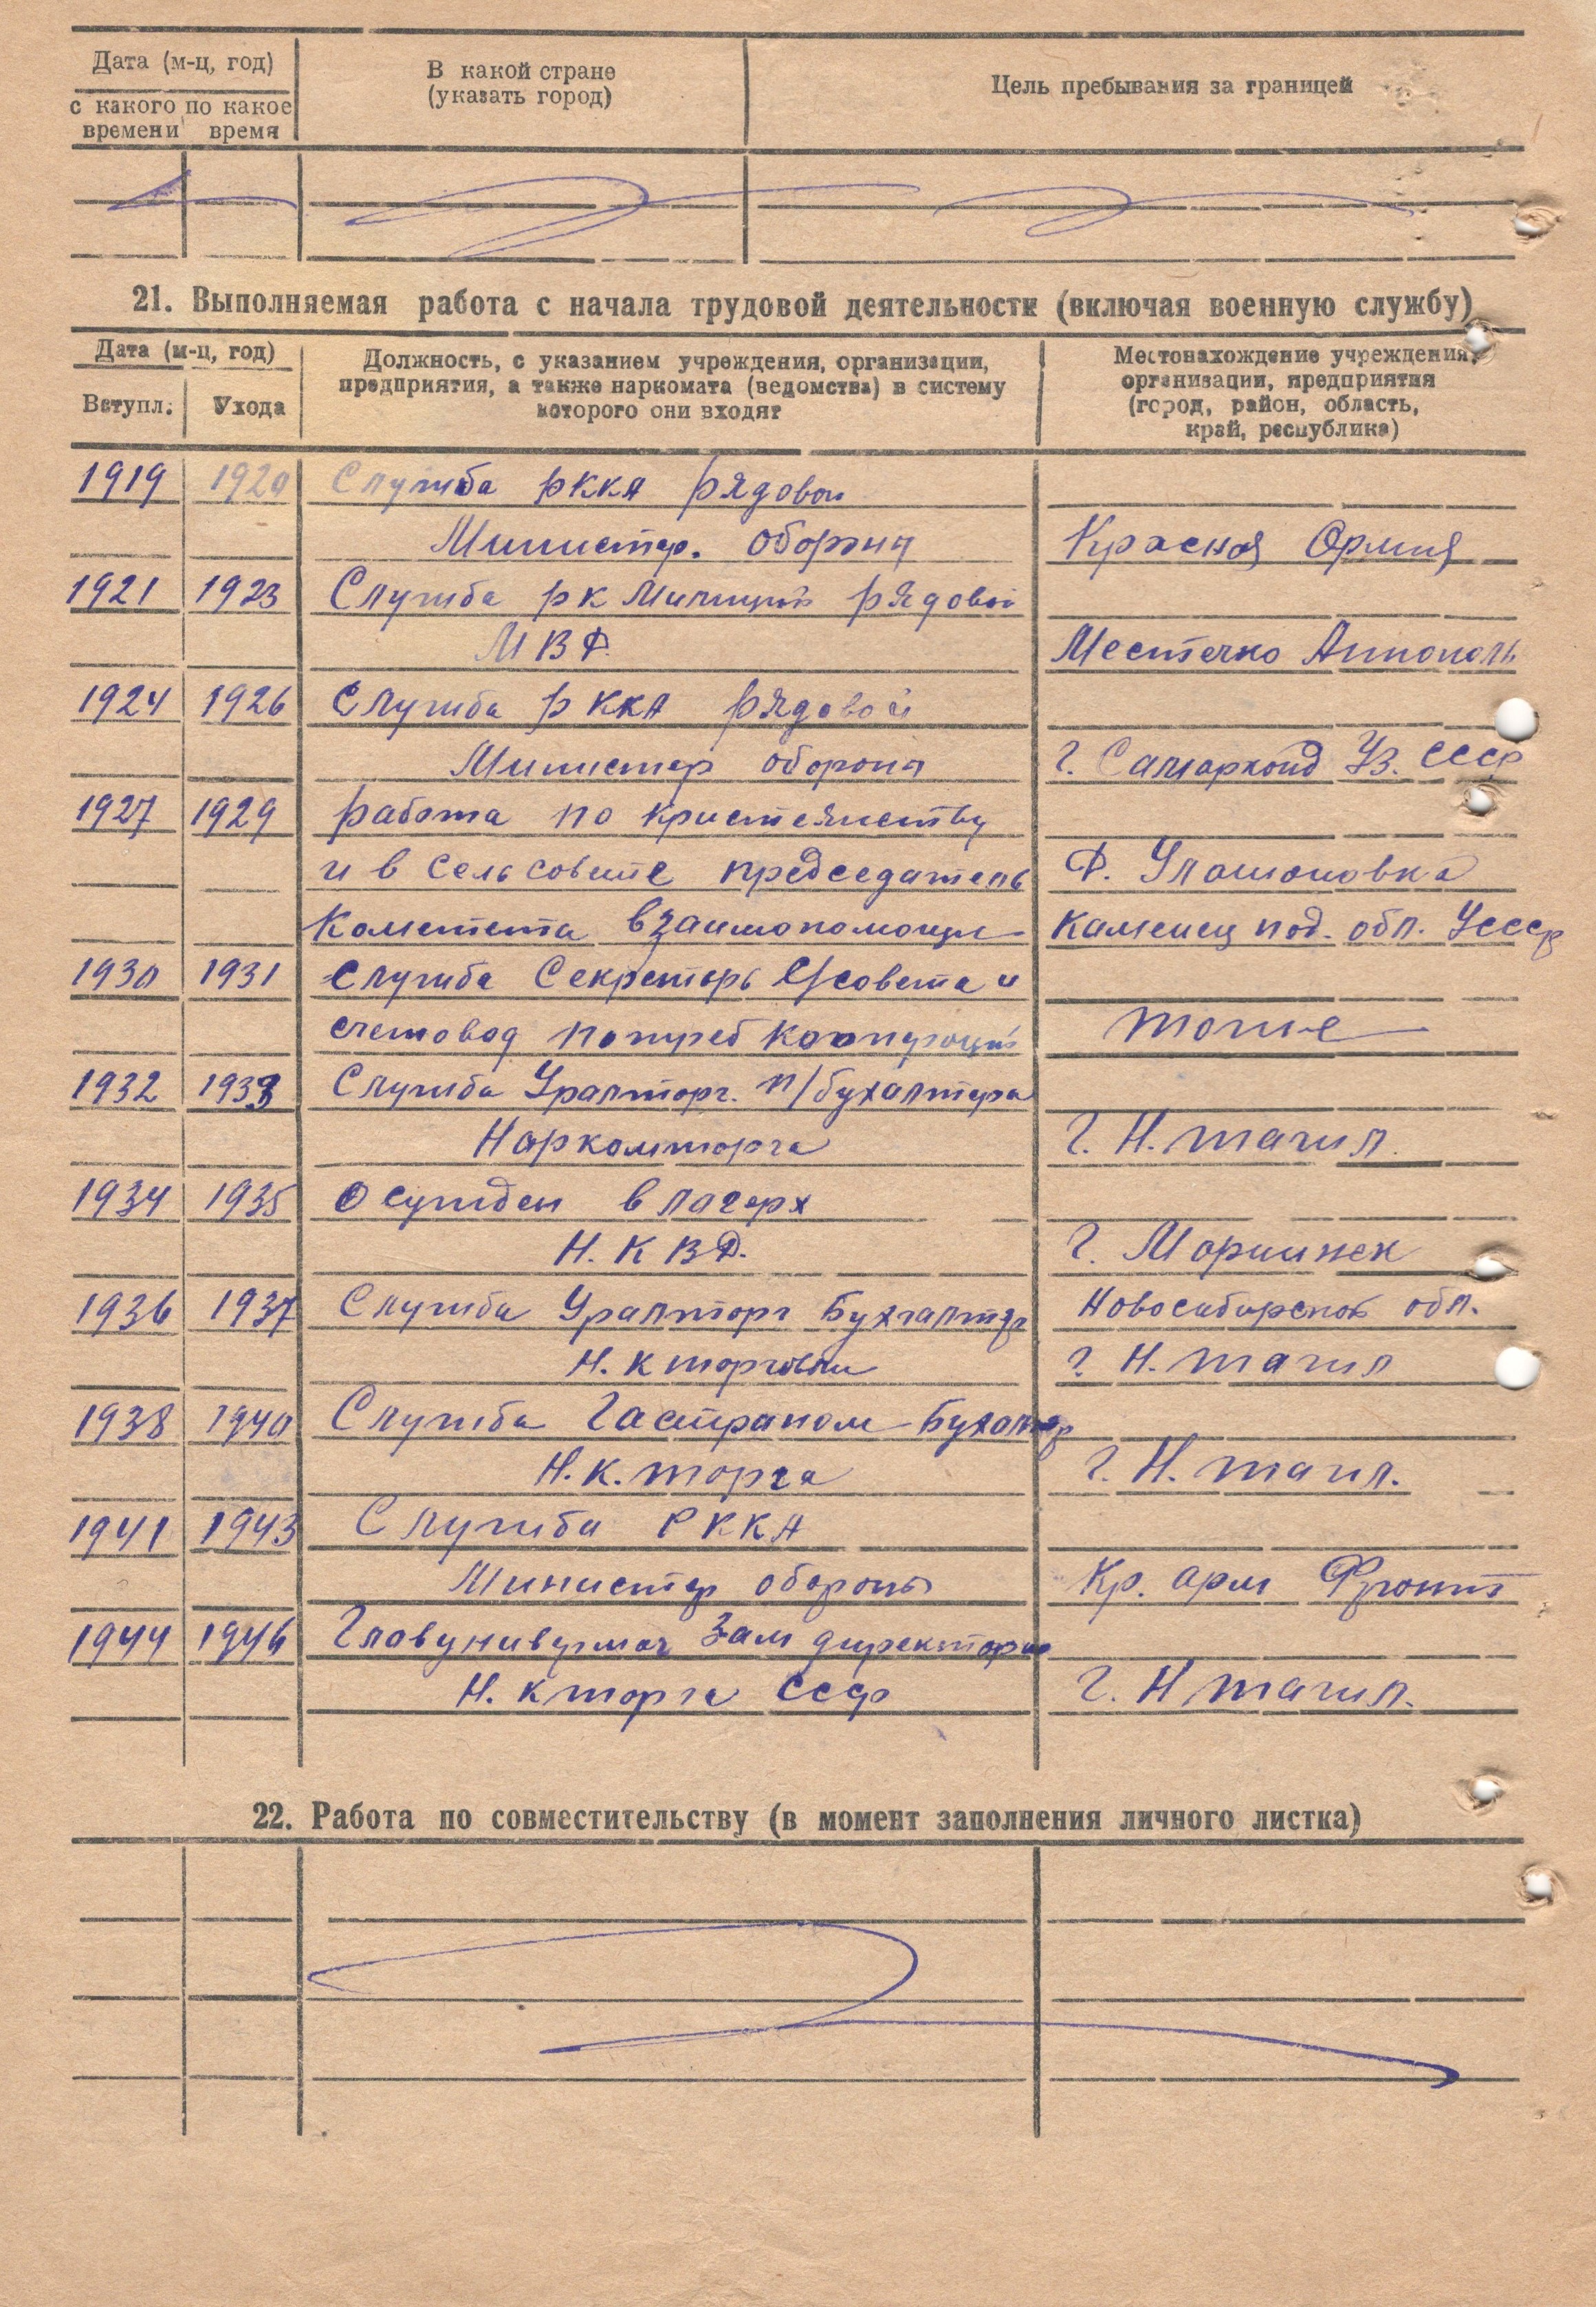 Дата (м-ц, год)
с какого времени
по какое время
В какой стране
(указать город)
Цель пребывания за границей
21. Выполняемая работа с начала трудовой деятельности (включая военную службу)
Дата (м-ц, год)
Вступл.
Ухода
Должность, с указанием учреждения, организации,
предприятия, а также наркомата (ведомства) в систему
которого они входят
Местонахождение учреждения,
организации, предприятия
(город, район, область,
край, республика)
1919 1920 Служба РККА рядовой
Министер. обороны Красная Армия
1921 1923 Служба РК Милиций рядовой
МВД Местечко
1924 1926 Служба РККА рядовой
Министер обороны г. Самарканд Уз. СССР
1927 1929 работа по
и в Сельсовете председатель Д.
Кометета взаимопомощи Каменец под. обл. УССР
1930 1931 Служба Секретарь С/совета и
счетовод потреб тоже
1932 1933 Служба Уралторг. п/бухалтера
Наркомторга г. Н. Тагил
1934 1935 Осужден в лагерх
Н.К.В.Д. г. Мариинск
1936 1937 Служба Уралторг Бухгалтер Новосибирской обл.
Н.К торговли г. Н. Тагил
1938 1940 Служба Гастраном Бухалтер
Н.К. торга г. Н. Тагил.
1941 1943 Служба РККА
Министер обороны Кр. арм Фронт
1944 1946 Главунивермаг Зам директора
Н. К торга СССР г. Н Тагил.
22. Работа по совместительству (в момент заполнения личного листка)